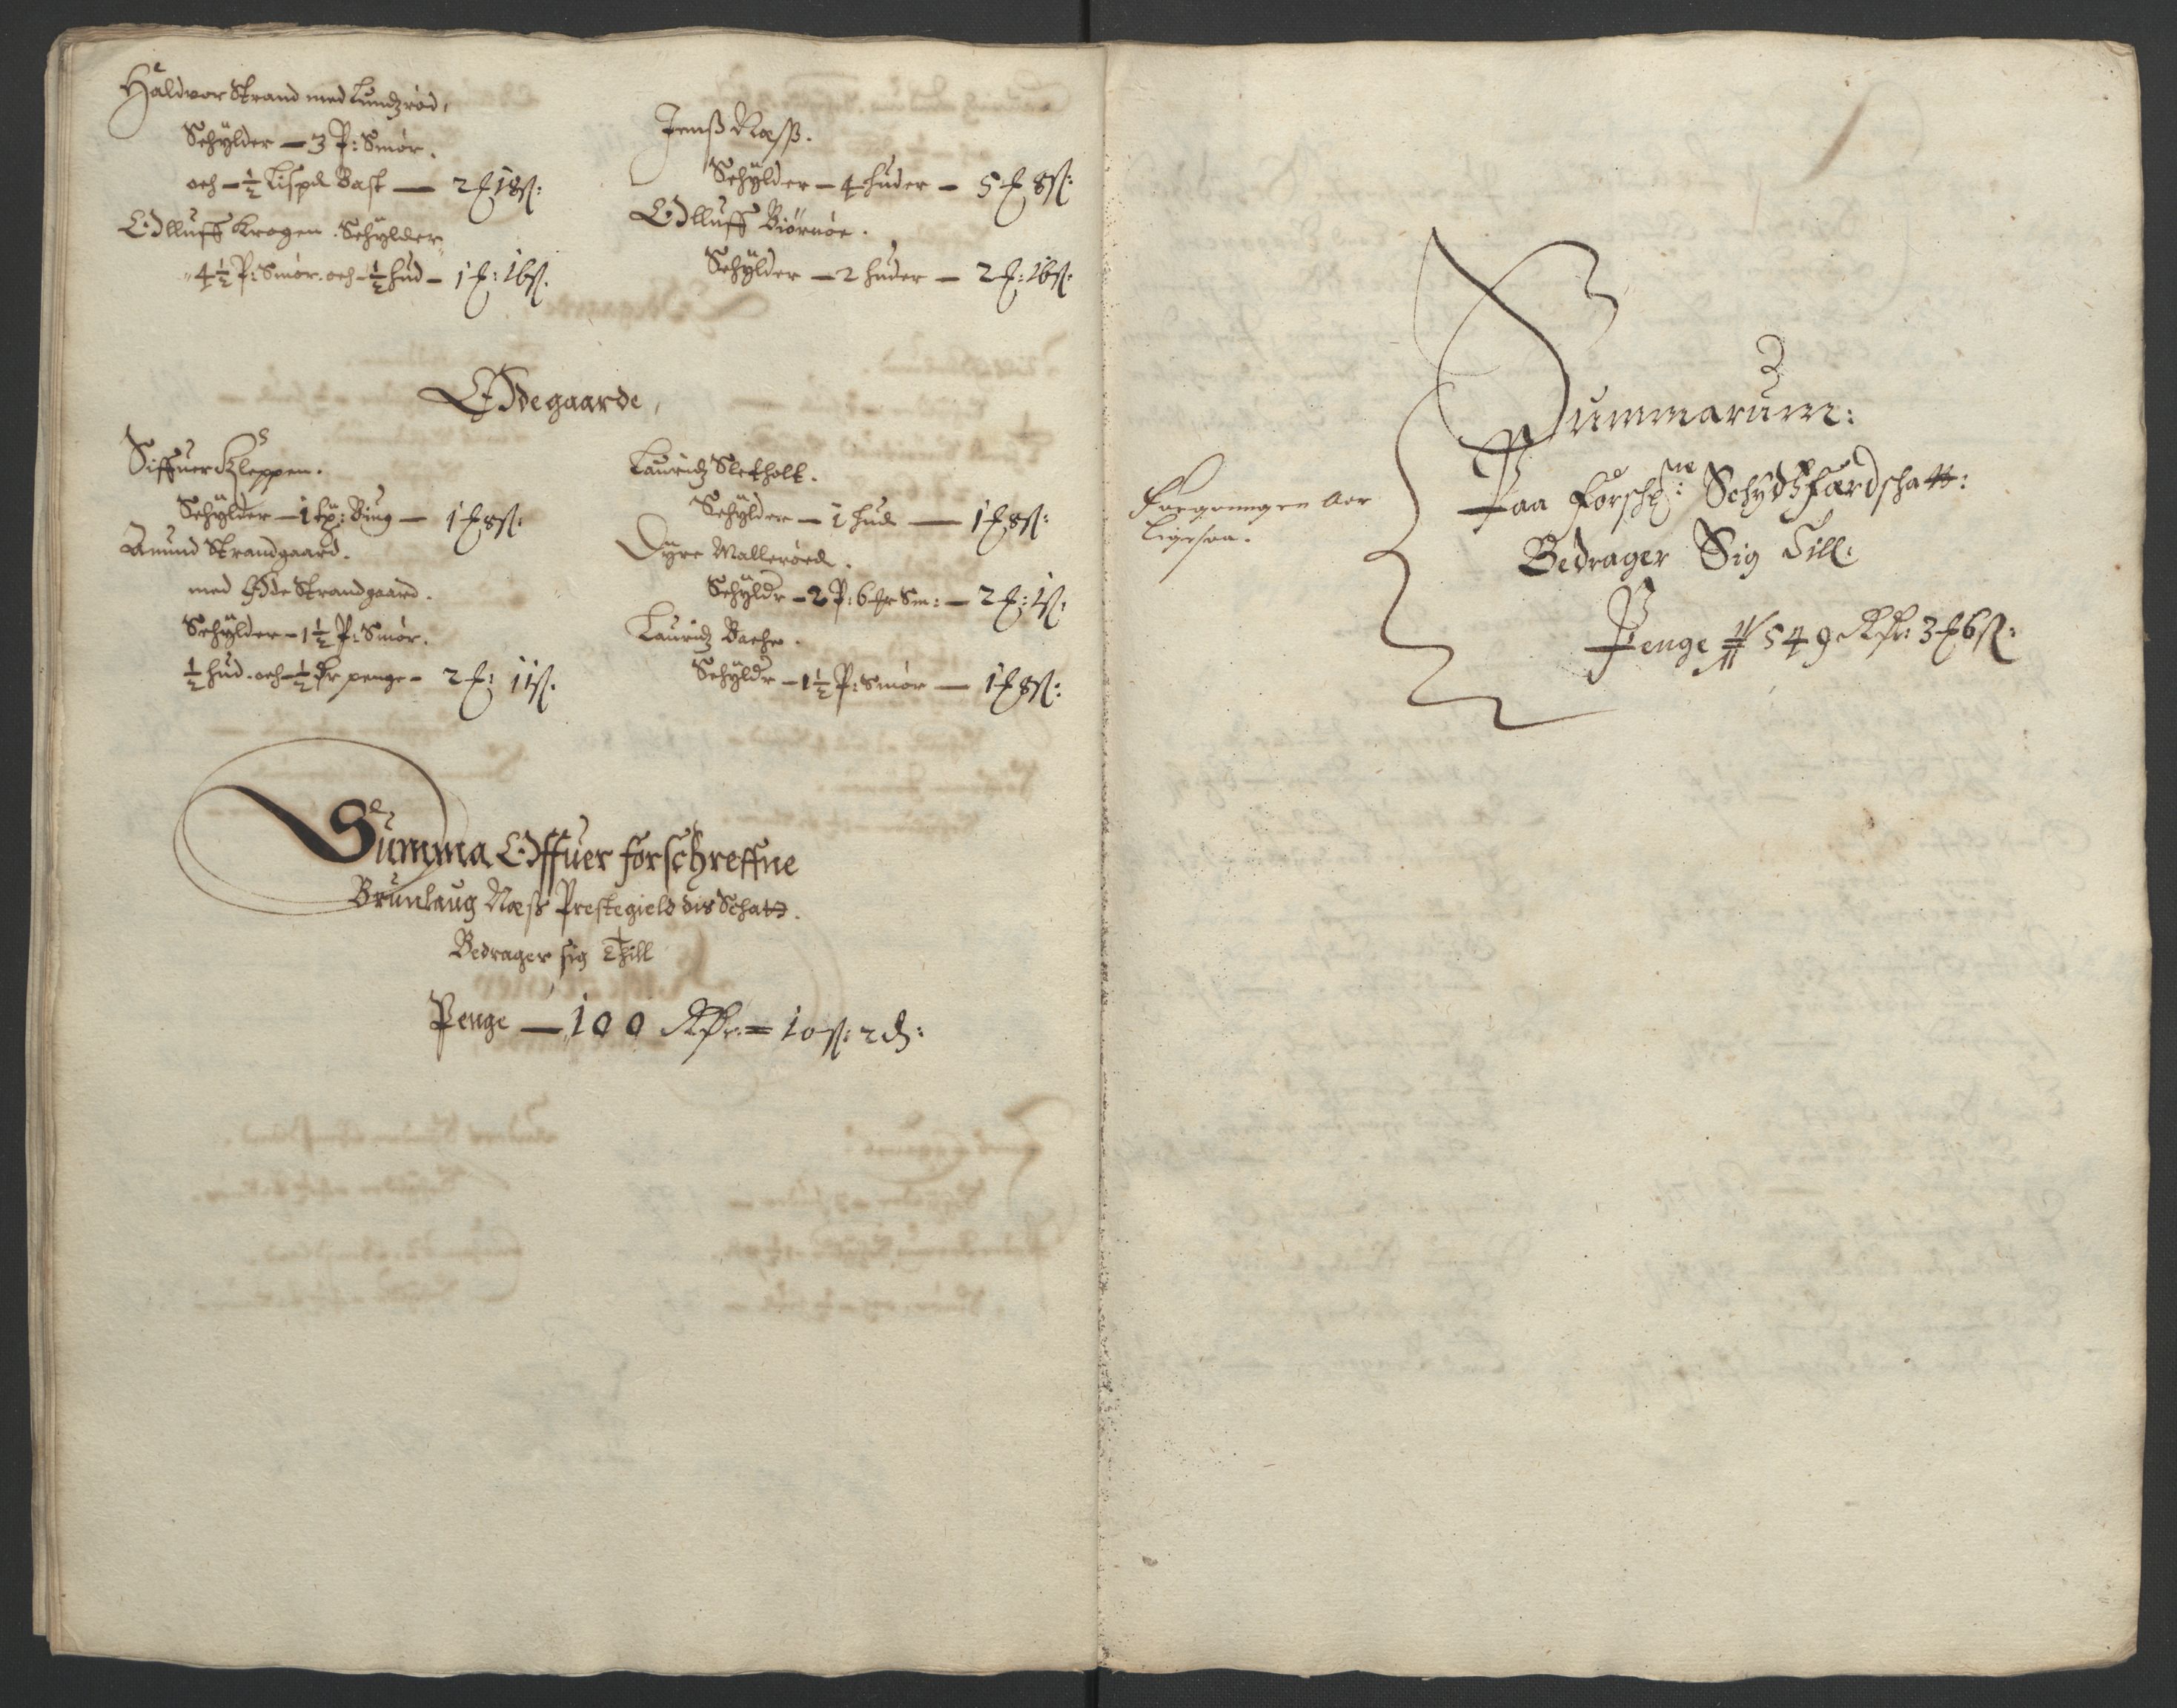 Haldvor Strand med Lundzrød,
Schylder — 3 P: Smør.
och — ½ Lispd Bast — 2 ℔ 18 ß:
Olluff Krogen. Schylder
4½ P: Smør. och — ½ hud — 1 ℔: 16 ß.
Jenß Næß.
Schylder — 4 huder — 5 ℔ 8 ß:
Olluff Biørnøe.
Schylder — 2 huder — 2 ℔: 16 ß:
Ødegaarde,
Siffuer Kleppen.
Schylder — 1 tp: Biug — 1 ℔ 8 ß:
Amund Strandgaard.
med Øde Strandgaard.
Schylder — 1½ P: Smør.
½ hud. och — ½ Ør penge — 2 ℔: 11 ß.
Lauridz Sletholt.
Schylder — 1 hud — 1 ℔ 8 ß:
Dyre Mallerøed.
Schyldr — 2 P: 6 Sm: — 2 ℔: 1 ß.
Lauridz Bache.
Schyldr — 1½ P: Smør — 1 ℔ 8 ß:
Summa Offuer forschreffne
Brunlaug Næß Prestegield dis Schatt.
Bedrager sig Thill
Penge — 100 Rdr: = 10 ß: 2 d:
Summarum:
Paa forschne: Schydtzfærdschatt:
Bedrager Sig Till:
Penge 549 Rdr: 3 ℔ 6 ß:
Forgangen Aar
ligesaa.